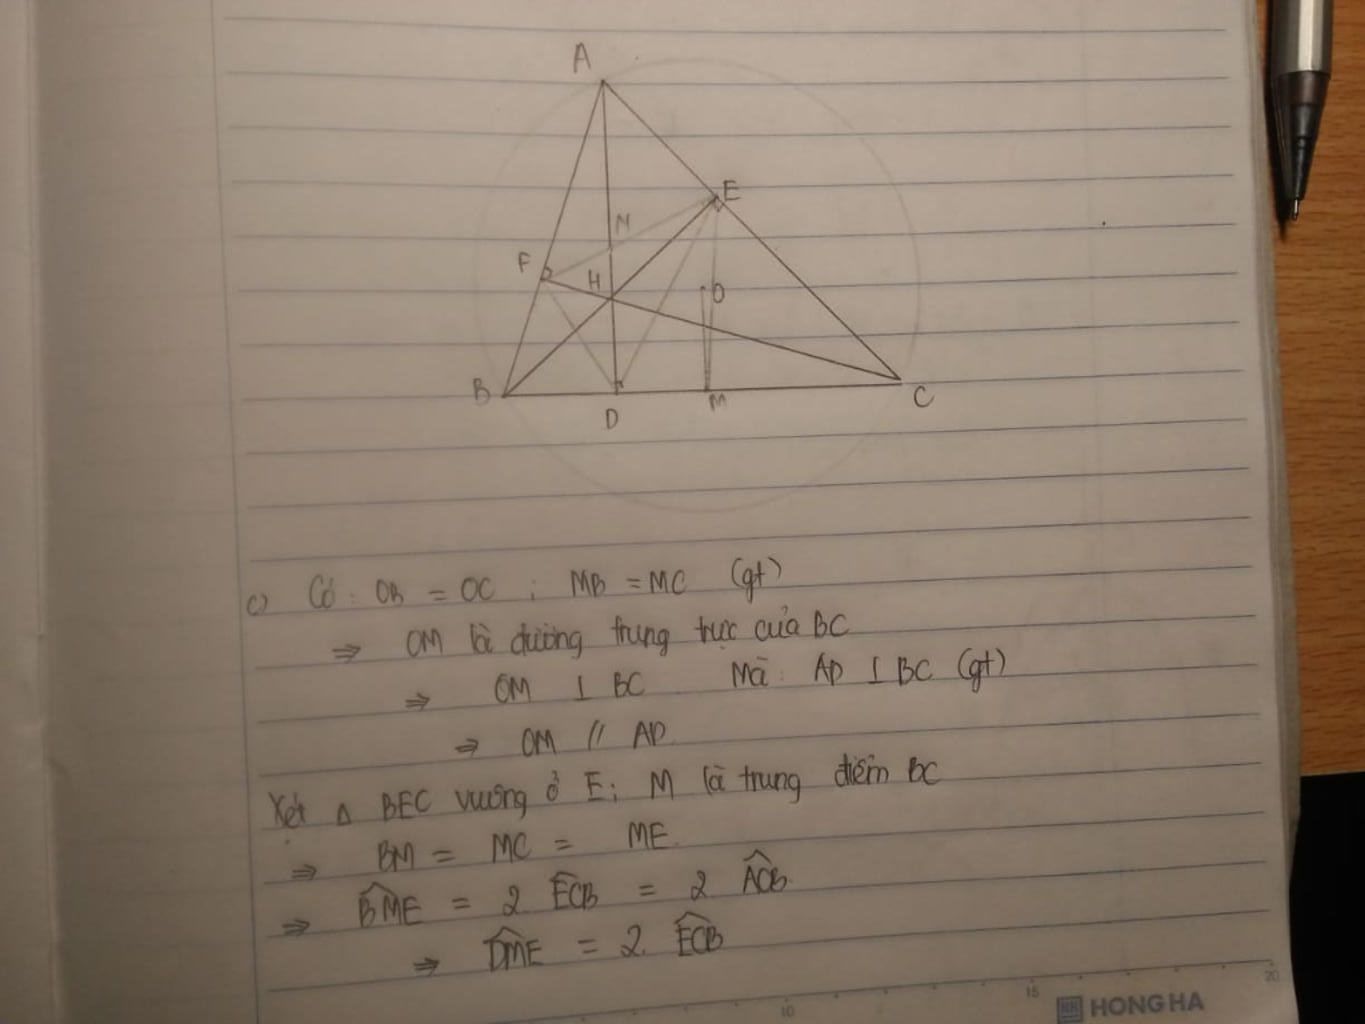 A
E
N
F
H
O
B
D
M
C
c) Có : OB = OC ; MB = MC (gt)
⇒ OM là đường trung trực của BC
⇒ OM ⊥ BC Mà : AD ⊥ BC (gt)
⇒ OM // AD.
Xét Δ BEC vuông ở E ; M là trung điểm BC
⇒ BM = MC = ME.
⇒ \widehat{BME} = 2 \widehat{ECB} = 2 \widehat{ACB}
⇒ \widehat{DME} = 2. \widehat{ECB}
10 15 20
HH HONG HA